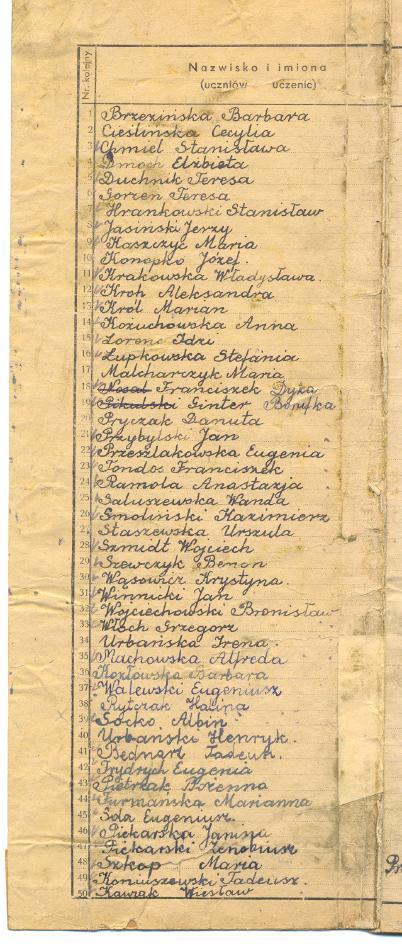 Nr. kolejny
Nazwisko i imiona
(uczniów uczenic)
1 Brzezińska Barbara
2 Cieślińska Cecylia
3 Chmiel Stanisława
4 Dmoch Elżbieta
5 Duchnik Teresa
6 Gorzen Teresa
7 Hrankowski Stanisław
8 Jasiński Jerzy
9 Kaszczyc Maria
10 Konopko Józef.
11 Krakowska Władysława.
12 Kroh Aleksandra
13 Król Marian
14 Kożuchowska Anna
15 Lorenc Idzi
16 Łupkowska Stefánia
17 Malcharczyk Maria
18 Nosal Franciszek Dyza
19 Pikulski Ginter
20 Pryczak Danuta
21 Przybylski Jan
22 Przeszlakowska Eugenia
23 Fondos Franciszek
24 Ramola Anastazja
25 Saluszewska Wanda
26 Smoliński Kazimierz
27 Staszewska Urszula
28 Szmidt Wojciech
29 Szewczyk Benon
30 Wąsowicz Krystyna.
31 Winnicki Jan
32 Wojciechowski Bronisław
33 Włoch Grzegorz
34 Urbańska Irena
35 Machowska Alfreda
36 Kozłowska Barbara
37 Walewski Eugeniusz
38 Rytczak Halina
39 Soćko Albin
40 Urbański Henryk.
41 Bednarz Tadeusz.
42 Frydrych Eugenia
43 Pietrzak Bożenna
44 Furmańska Marianna
45 Sola Eugeniusz.
46 Piekarska Janina
47 Piekarski Zenobiusz
48 Szkop Maria
49 Koniuszewski Tadeusz.
50 Kawzak Wiesław